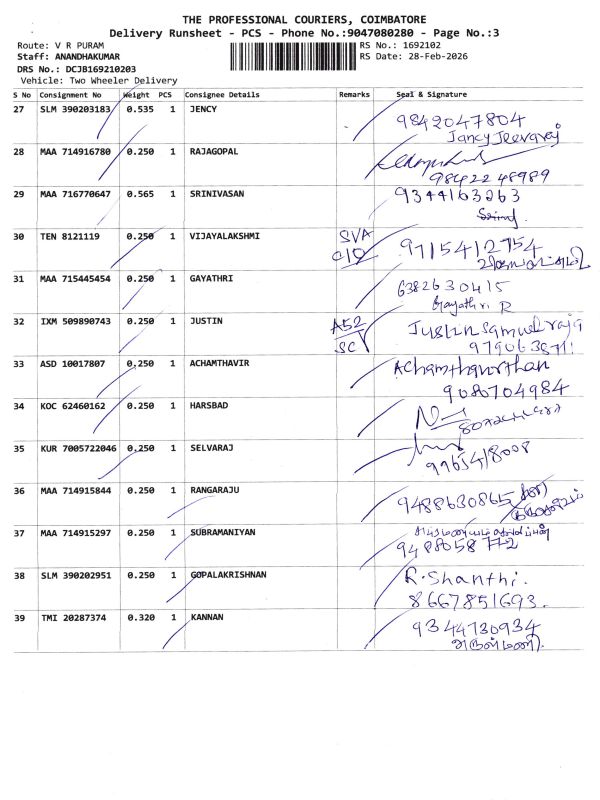 THE PROFESSIONAL COURIERS, COIMBATORE
Delivery Runsheet - PCS - Phone No.:9047080280 - Page No.:3
Route: V R PURAM RS No.: 1692102
Staff: ANANDHAKUMAR RS Date: 28-Feb-2026
DRS No.: DCJB169210203
Vehicle: Two Wheeler Delivery
S No Consignment No Weight PCS Consignee Details Remarks Seal & Signature
27 SLM 390203183 0.535 1 JENCY 9842047804
Jancy Jeevaraj
28 MAA 714916780 0.250 1 RAJAGOPAL
9842248989
29 MAA 716770647 0.565 1 SRINIVASAN 9344163263
30 TEN 8121119 0.250 1 VIJAYALAKSHMI SVA 9715412754
C/O
31 MAA 715445454 0.250 1 GAYATHRI 6382630415
Gayathri R
32 IXM 509890743 0.250 1 JUSTIN A52 Justin Samuel raja
SC
33 ASD 10017807 0.250 1 ACHAMTHAVIR
9080704984
34 KOC 62460162 0.250 1 HARSBAD
35 KUR 7005722046 0.250 1 SELVARAJ
36 MAA 714915844 0.250 1 RANGARAJU 9488630865
37 MAA 714915297 0.250 1 SUBRAMANIYAN
9488058772
38 SLM 390202951 0.250 1 GOPALAKRISHNAN R. Shanthi.
8667851693.
39 TMI 20287374 0.320 1 KANNAN 9344730934
அருள்மணி